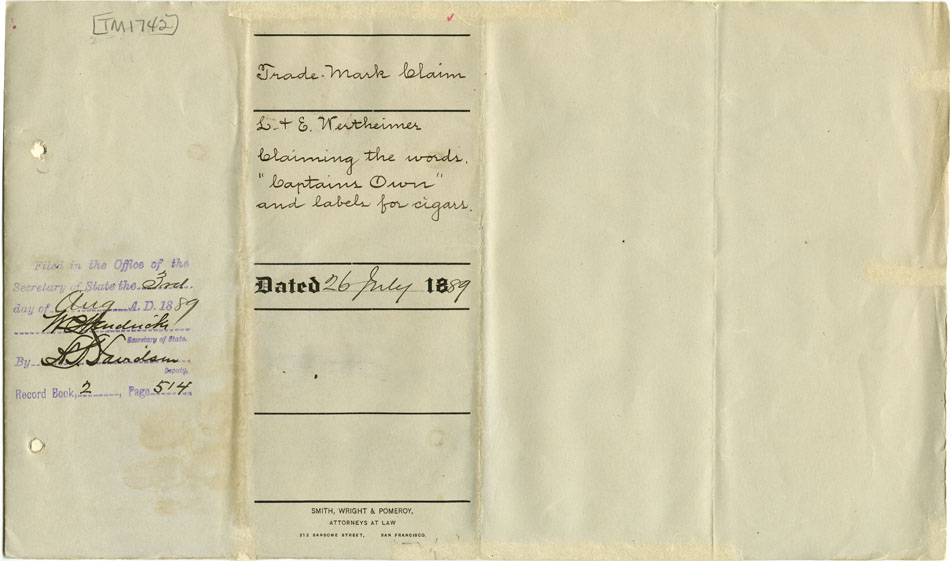 [TM1742]
Trade-Mark Claim
L. + E. Wertheimer
Claiming the words.
"Captains Own"
and labels for cigars.
Dated 26 July 1889
SMITH, WRIGHT & POMEROY,
ATTORNEYS AT LAW
213 SANSOME STREET, SAN FRANCISCO.
Filed in the Office of the
Secretary of State the 3rd
day of Aug A.D. 1889
W C Hendricks
Secretary of State.
By Davidson
Deputy.
Record Book, 2, Page 514